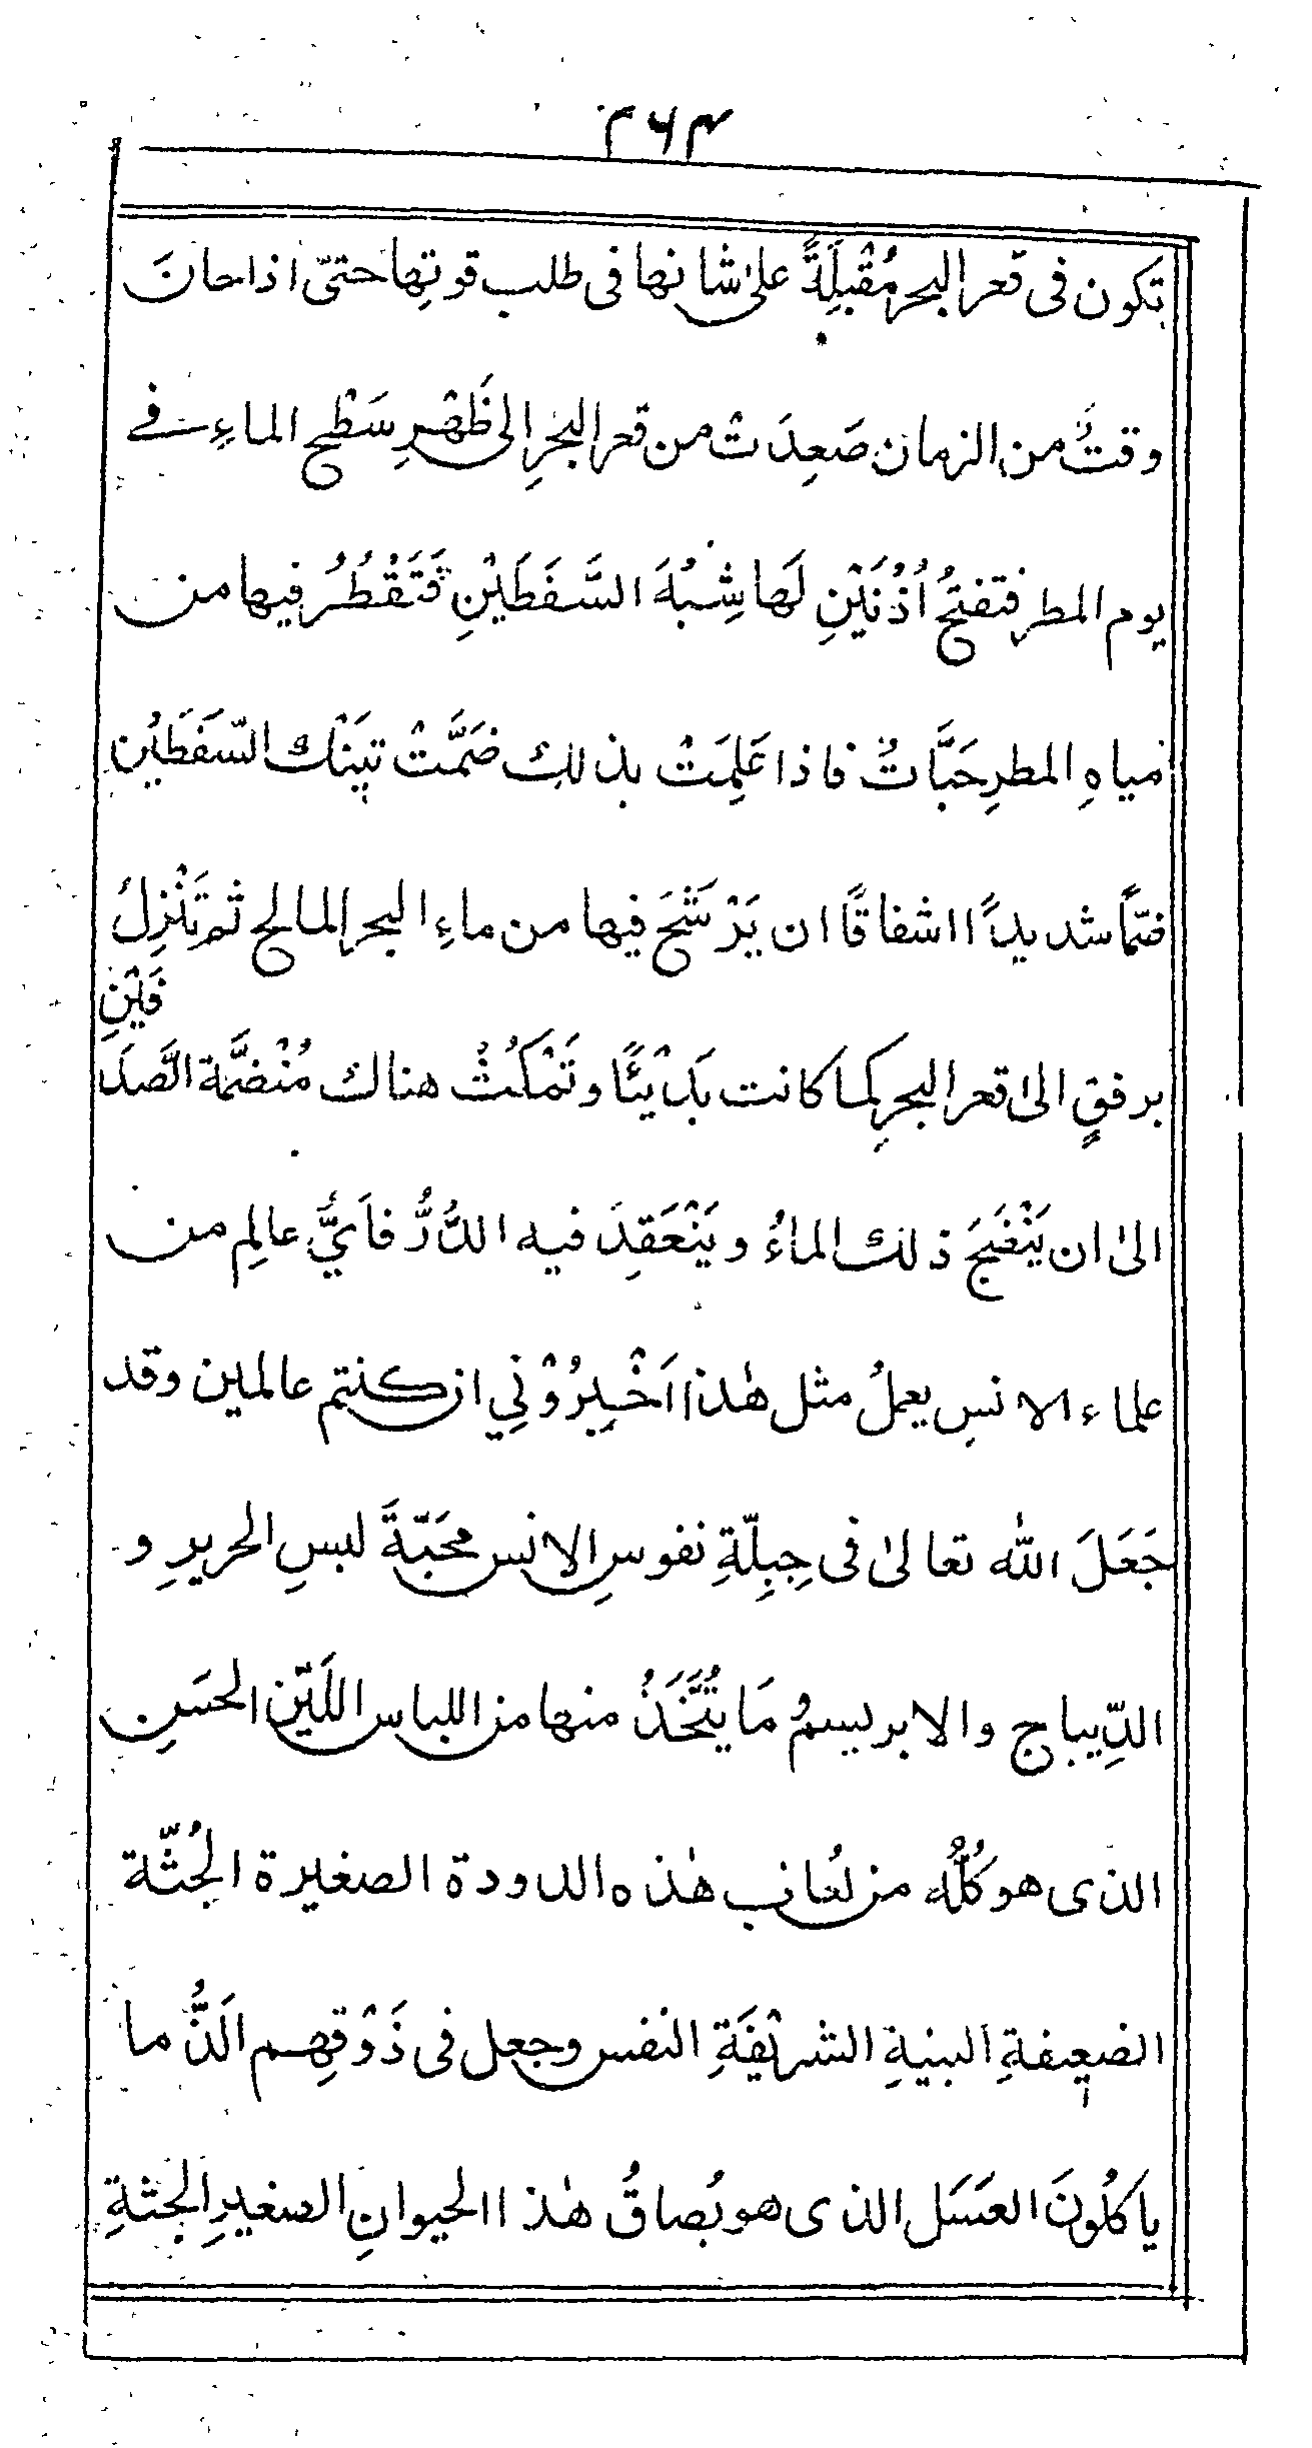 ۲۶۴
تكون فى قعر البحر مُقْبِلَةً علىٰ شانها فى طلب قوتِها حتىّ اذا حانَ
وقتٌ من الزمان صَعِدَتْ من قعر البحرِ الى ظَهْرِ سَطْحِ الماءِ فے
يوم المطر فتفتحُ اُذُنَيْنِ لَها شِبْهَ السَّفَطَيْنِ فَتَقْطُرُ فيها من
مياهِ المطرِ حَبَّاتٌ فاذا عَلِمَتْ بذلك ضَمَّتْ تَيْنِكَ السَّفَطَيْن
ضمًّا شديدًا اشفاقًا ان يَرْشَحَ فيها من ماءِ البحر المالح ثم تَنْزِلُ
برفقٍ الىٰ قعر البحرِ كما كانت بَدْيئًا وتَمْكُثُ هناك مُنْضَمَّة الصَّدَ
فَيْنِ
الىٰ ان يَنْضَجَ ذلك الماءُ ويَنْعَقِدَ فيه الدُّرُّ فاَيُّ عالِمٍ من
علماء الانسِ يعملُ مثل هٰذا اَخْبِرُوْنِي ان كنتم عالمين وقد
جَعَلَ الله تعالىٰ فى جِبِلّةِ نفوسِ الانس محَبّةَ لبسِ الحريرِ و
الدِّيباج والابريسمُ مَا يُتَّخَذُ منها من اللباس اللَيّنِ الحسَنِ
الذى هو كُلُّه من لُعاب هٰذه الدودة الصغيرة الجُثّة
الضعيفةِ البنيةِ الشريْفَةِ النفس وجعل فى ذَوْقِهم الَذُّ ما
ياكلُونَ العَسَل الذى هو بُصاقُ هٰذا الحيوانِ الصغيرِ الجثةِ